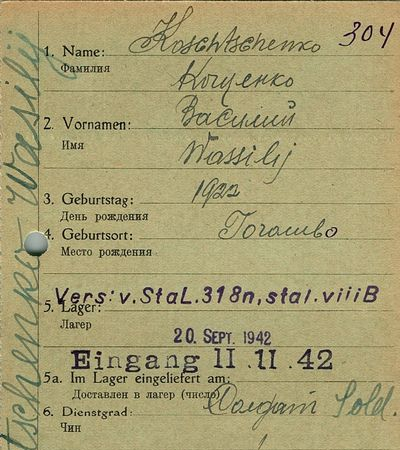 304
1. Name: Koschtschenko
Фамилия
Кощенко
2. Vornamen: Василий
Имя
Wassilij
3. Geburtstag: 1922
День рождения
4. Geburtsort:
Место рождения
Vers: v. StaL. 318 n, stal. viii B
5. Lager:
Лагер
20. SEPT. 1942
Eingang 11. 11. 42
5a. Im Lager eingeliefert am:
Доставлен в лагер (число)
6. Dienstgrad: Солдат Sold.
Чин
tschenko Wasilij